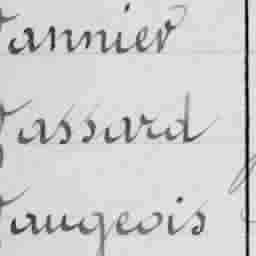 Vannier
Vassard
Vaugeois